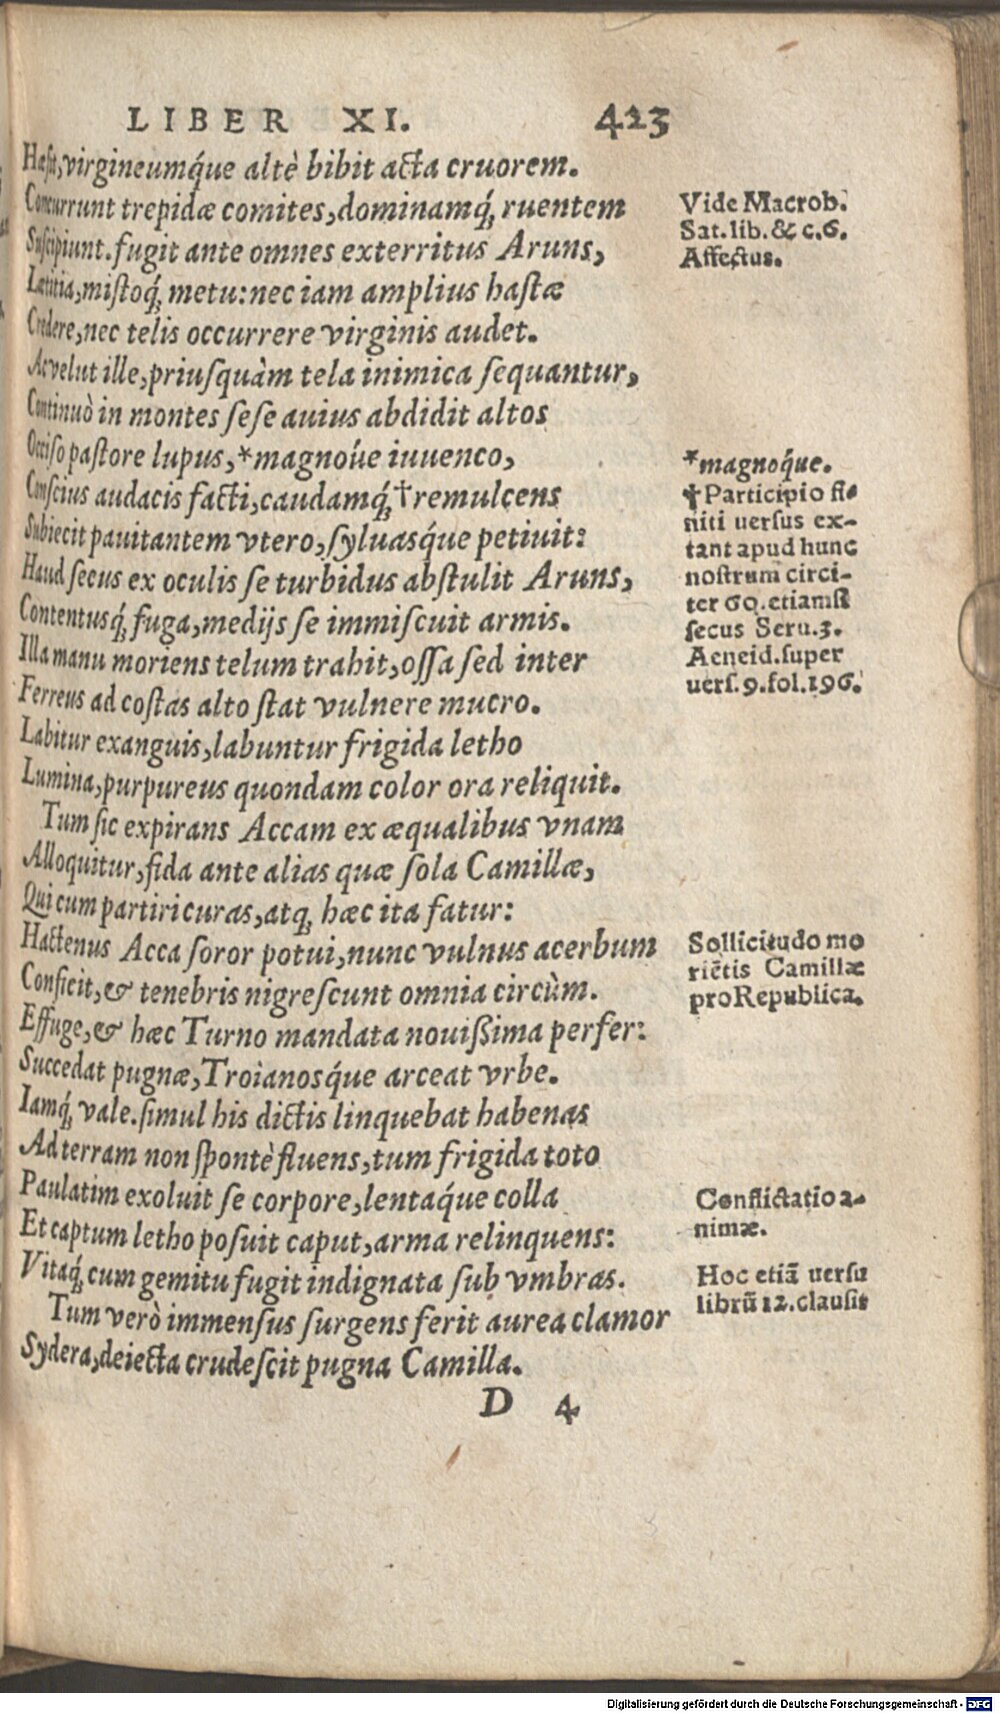 LIBER XI. 423
Hæsit, virgineumq́ue altè bibit acta cruorem.
Concurrunt trepidæ comites, dominamq́; ruentem
Suscipiunt. fugit ante omnes exterritus Aruns,
Lætitia, mistoq́; metu: nec iam amplius hastæ
Credere, nec telis occurrere virginis audet.
Ac velut ille, priusquàm tela inimica sequantur,
Continuò in montes sese auius abdidit altos
Occiso pastore lupus, *magnoúe iuuenco,
Conscius audacis facti, caudamq́; †remulcens
Subiecit pauitantem vtero, syluasq́ue petiuit:
Haud secus ex oculis se turbidus abstulit Aruns,
Contentusq́; fuga, medijs se immiscuit armis.
Illa manu moriens telum trahit, ossa sed inter
Ferreus ad costas alto stat vulnere mucro.
Labitur exanguis, labuntur frigida letho
Lumina, purpureus quondam color ora reliquit.
Tum sic expirans Accam ex æqualibus vnam
Alloquitur, fida ante alias quæ sola Camillæ,
Qui cum partiri curas, atq; hæc ita fatur:
Hactenus Acca soror potui, nunc vulnus acerbum
Conficit, & tenebris nigrescunt omnia circùm.
Effuge, & hæc Turno mandata nouißima perfer:
Succedat pugnæ, Troianosq́ue arceat vrbe.
Iamq́; vale. simul his dictis linquebat habenas
Ad terram non spontè fluens, tum frigida toto
Paulatim exoluit se corpore, lentaq́ue colla
Et captum letho posuit caput, arma relinquens:
Vitaq́; cum gemitu fugit indignata sub vmbras.
Tum verò immensus surgens ferit aurea clamor
Sydera, deiecta crudescit pugna Camilla.
D 4
Vide Macrob.
Sat. lib. & c. 6.
Affectus.
*magnoq́ue.
†Participio fi-
niti uersus ex-
tant apud hunc
nostrum circi-
ter 60. etiamsi
secus Seru. 3.
Aeneid. super
uers. 9. fol. 196.
Sollicitudo mo
riẽtis Camillæ
pro Republica.
Conflictatio a-
nimæ.
Hoc etiã uersu
librũ 12. clausit
Digitalisierung gefördert durch die Deutsche Forschungsgemeinschaft - DFG